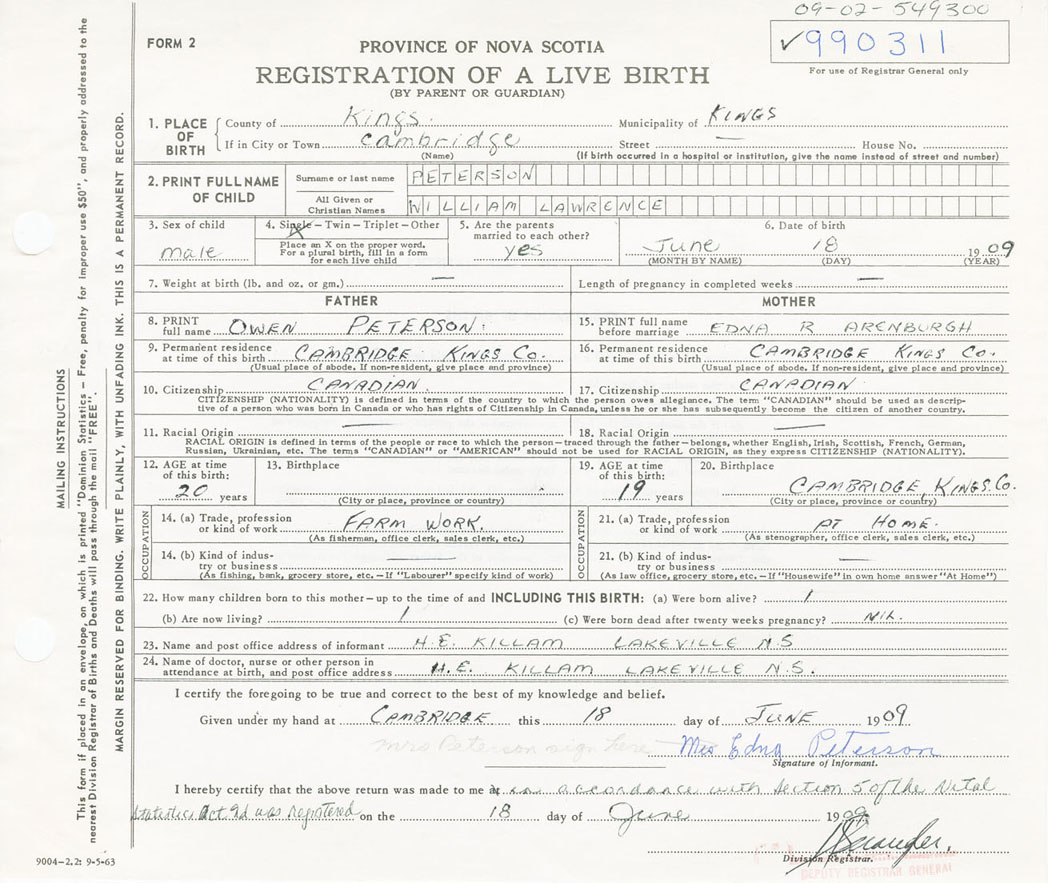 09-02-549300
FORM 2
PROVINCE OF NOVA SCOTIA
✓990311
REGISTRATION OF A LIVE BIRTH
For use of Registrar General only
(BY PARENT OR GUARDIAN)
1. PLACE OF BIRTH County of Kings. Municipality of KINGS
If in City or Town Cambridge Street — House No.
(Name) (If birth occurred in a hospital or institution, give the name instead of street and number)
2. PRINT FULL NAME OF CHILD
Surname or last name PETERSON
All Given or Christian Names WILLIAM LAWRENCE
3. Sex of child male
4. Single – Twin – Triplet – Other
X
Place an X on the proper word.
For a plural birth, fill in a form
for each live child
5. Are the parents
married to each other?
yes
6. Date of birth
June 18 1909
(MONTH BY NAME) (DAY) (YEAR)
7. Weight at birth (lb. and oz. or gm.) — Length of pregnancy in completed weeks —
FATHER MOTHER
8. PRINT full name OWEN PETERSON.
15. PRINT full name before marriage EDNA R ARENBURGH
9. Permanent residence at time of this birth CAMBRIDGE KINGS CO.
(Usual place of abode. If non-resident, give place and province)
16. Permanent residence at time of this birth CAMBRIDGE KINGS CO.
(Usual place of abode. If non-resident, give place and province)
10. Citizenship CANADIAN. 17. Citizenship CANADIAN
CITIZENSHIP (NATIONALITY) is defined in terms of the country to which the person owes allegiance. The term "CANADIAN" should be used as descrip-
tive of a person who was born in Canada or who has rights of Citizenship in Canada, unless he or she has subsequently become the citizen of another country.
11. Racial Origin — 18. Racial Origin —
RACIAL ORIGIN is defined in terms of the people or race to which the person – traced through the father – belongs, whether English, Irish, Scottish, French, German,
Russian, Ukrainian, etc. The terms "CANADIAN" or "AMERICAN" should not be used for RACIAL ORIGIN, as they express CITIZENSHIP (NATIONALITY).
12. AGE at time of this birth: 20 years
13. Birthplace
(City or place, province or country)
19. AGE at time of this birth: 19 years
20. Birthplace
CAMBRIDGE, KINGS.CO.
(City or place, province or country)
OCCUPATION
14. (a) Trade, profession or kind of work FARM WORK.
(As fisherman, office clerk, sales clerk, etc.)
14. (b) Kind of indus-
try or business —
(As fishing, bank, grocery store, etc. – If "Labourer" specify kind of work)
OCCUPATION
21. (a) Trade, profession or kind of work AT HOME.
(As stenographer, office clerk, sales clerk, etc.)
21. (b) Kind of indus-
try or business —
(As law office, grocery store, etc. – If "Housewife" in own home answer "At Home")
22. How many children born to this mother – up to the time of and INCLUDING THIS BIRTH: (a) Were born alive? 1
(b) Are now living? 1 (c) Were born dead after twenty weeks pregnancy? NIL.
23. Name and post office address of informant H.E. KILLAM LAKEVILLE N.S
24. Name of doctor, nurse or other person in
attendance at birth, and post office address H.E. KILLAM LAKEVILLE N.S.
I certify the foregoing to be true and correct to the best of my knowledge and belief.
Given under my hand at CAMBRIDGE this 18 day of JUNE 1909
mrs Peterson sign here Mrs Edna Peterson
Signature of Informant.
I hereby certify that the above return was made to me at in accordance with Section 5 of the Vital
Statistics Act and was registered on the 18 day of June 1909
Division Registrar.
DEPUTY REGISTRAR GENERAL
9004-2,2: 9-5-63
MAILING INSTRUCTIONS
This form if placed in an envelope, on which is printed "Dominion Statistics – Free, penalty for improper use $50", and properly addressed to the
nearest Division Registrar of Births and Deaths will pass through the mail "FREE".
MARGIN RESERVED FOR BINDING. WRITE PLAINLY, WITH UNFADING INK. THIS IS A PERMANENT RECORD.